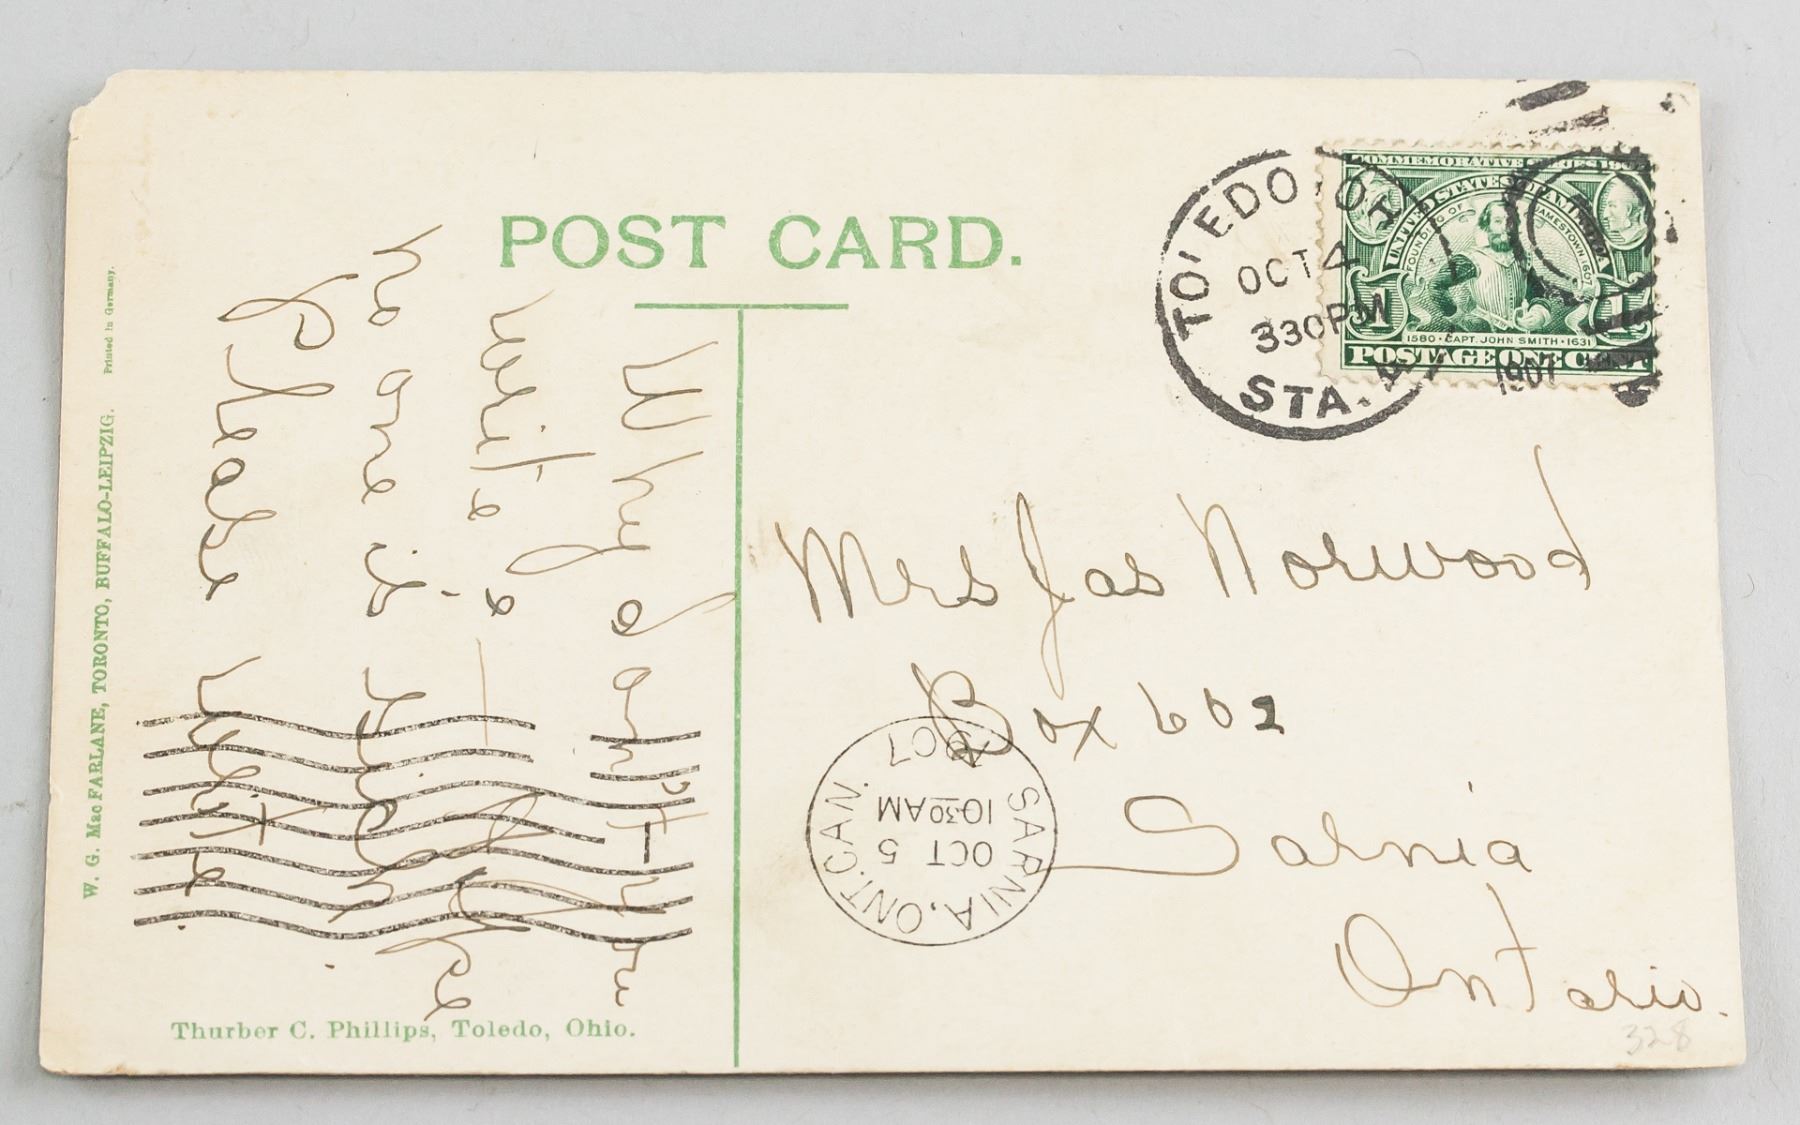 POST CARD.
TOLEDO, OH
OCT 4
330 PM
1907
STA. A
COMMEMORATIVE SERIES 1907
UNITED STATES OF AMERICA
FOUNDING OF JAMESTOWN 1607
1 1
1580 · CAPT. JOHN SMITH · 1631
POSTAGE ONE CENT
Why don't you
write a
no one is
Please write.
Mrs Jas Norwood
Box 602
Sarnia
Ontario.
SARNIA, ONT. CAN.
OCT 5
10 30 AM
1907
W. G. Mac FARLANE, TORONTO, BUFFALO-LEIPZIG. Printed in Germany.
Thurber C. Phillips, Toledo, Ohio.
328